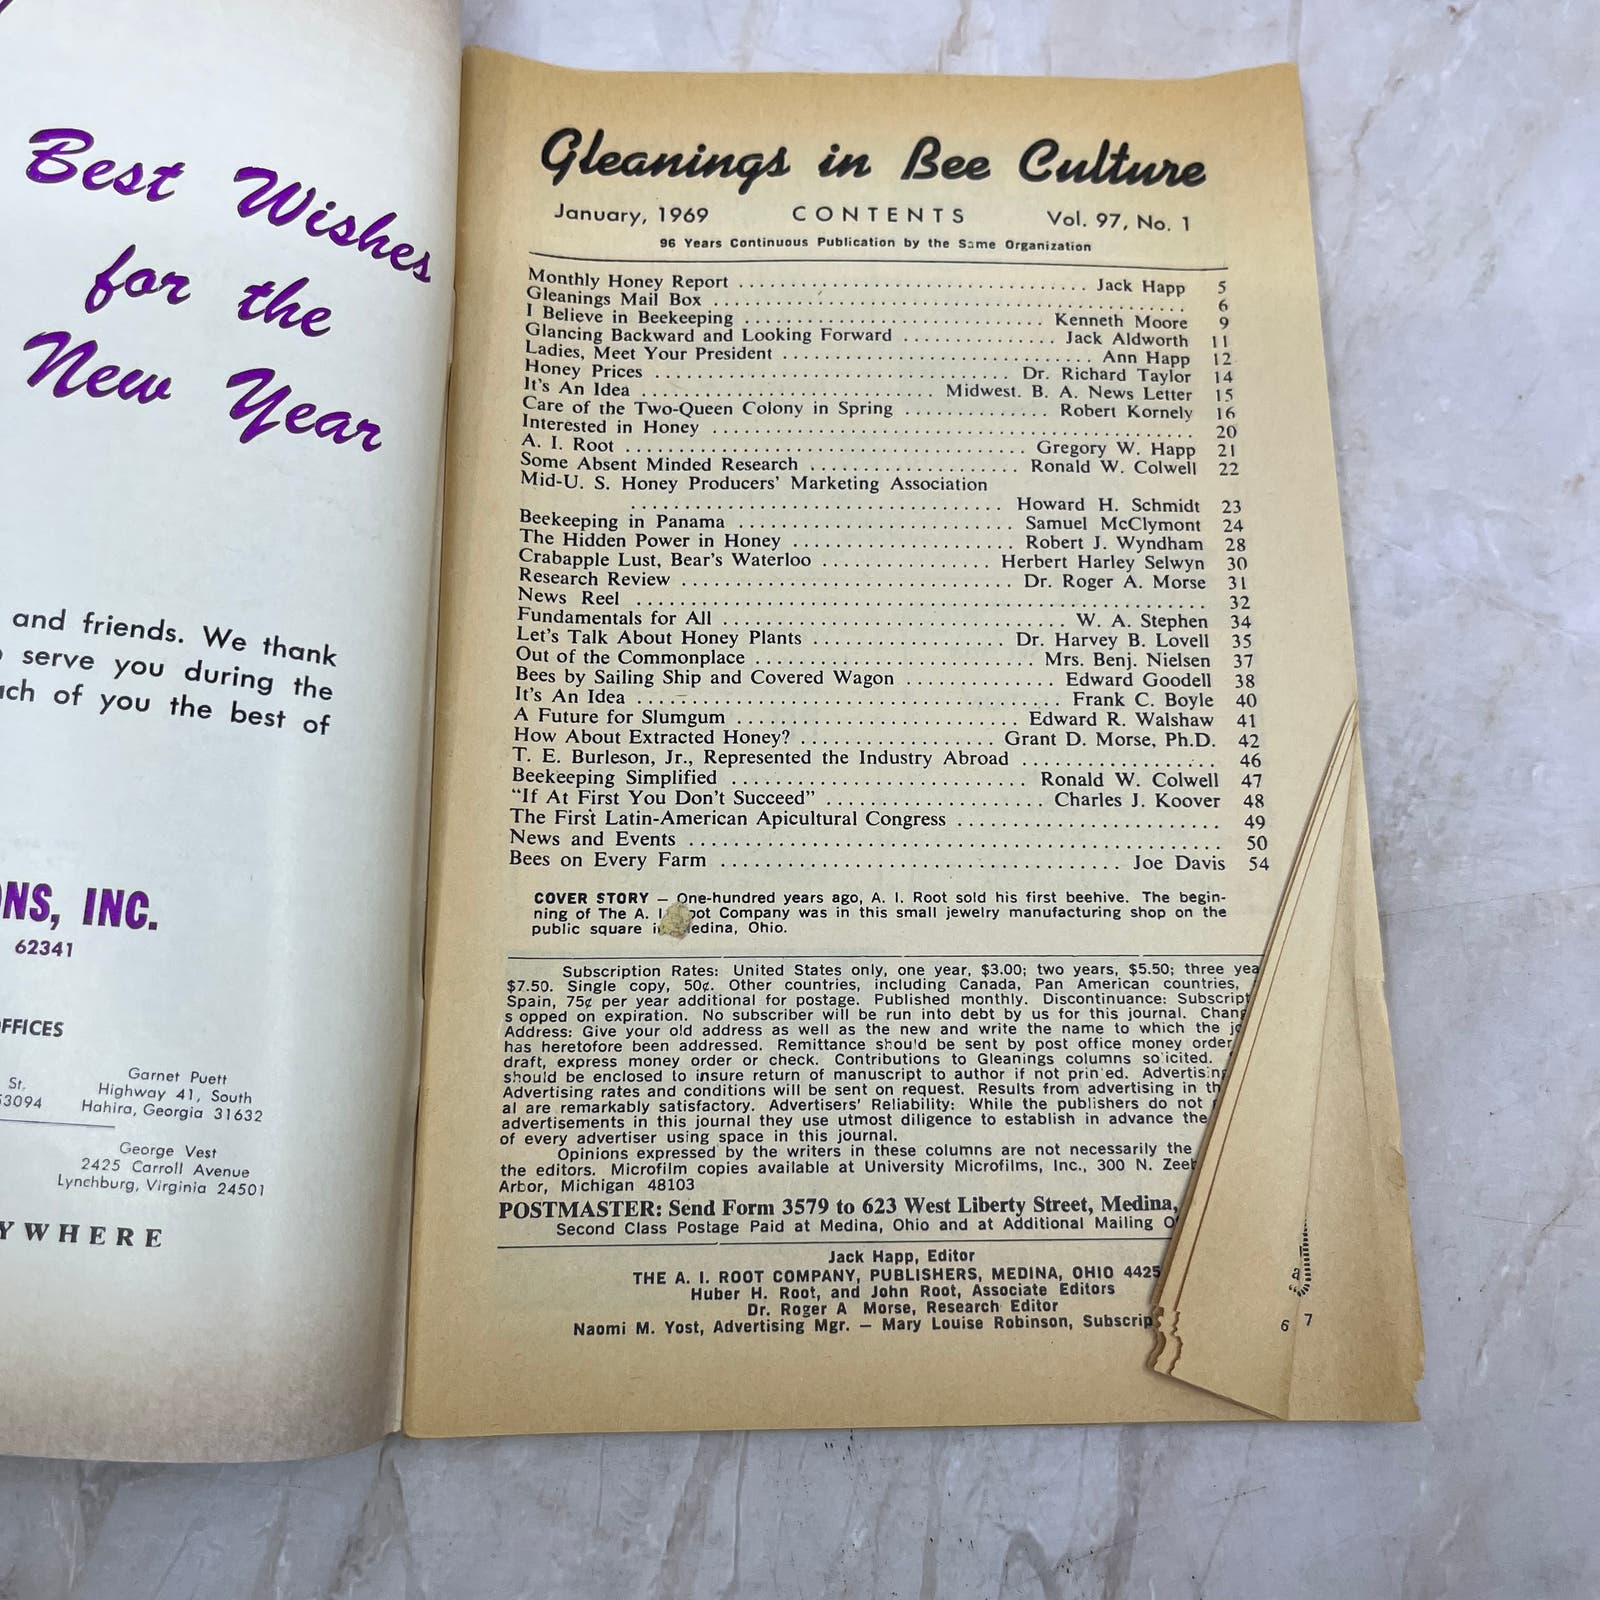 Best Wishes
for the
New Year
and friends. We thank
serve you during the
of you the best of
INC.
62341
St.
53094
Garnet Puett
Highway 41, South
Hahira, Georgia 31632
George Vest
2425 Carroll Avenue
Lynchburg, Virginia 24501
Gleanings in Bee Culture
January, 1969 CONTENTS Vol. 97, No. 1
96 Years Continuous Publication by the Same Organization
Monthly Honey Report ........ Jack Happ 5
Gleanings Mail Box ........ 6
I Believe in Beekeeping ........ Kenneth Moore 9
Glancing Backward and Looking Forward ........ Jack Aldworth 11
Ladies, Meet Your President ........ Ann Happ 12
Honey Prices ........ Dr. Richard Taylor 14
It's An Idea ........ Midwest. B. A. News Letter 15
Care of the Two-Queen Colony in Spring ........ Robert Kornely 16
Interested in Honey ........ 20
A. I. Root ........ Gregory W. Happ 21
Some Absent Minded Research ........ Ronald W. Colwell 22
Mid-U. S. Honey Producers' Marketing Association
........ Howard H. Schmidt 23
Beekeeping in Panama ........ Samuel McClymont 24
The Hidden Power in Honey ........ Robert J. Wyndham 28
Crabapple Lust, Bear's Waterloo ........ Herbert Harley Selwyn 30
Research Review ........ Dr. Roger A. Morse 31
News Reel ........ 32
Fundamentals for All ........ W. A. Stephen 34
Let's Talk About Honey Plants ........ Dr. Harvey B. Lovell 35
Out of the Commonplace ........ Mrs. Benj. Nielsen 37
Bees by Sailing Ship and Covered Wagon ........ Edward Goodell 38
It's An Idea ........ Frank C. Boyle 40
A Future for Slumgum ........ Edward R. Walshaw 41
How About Extracted Honey? ........ Grant D. Morse, Ph.D. 42
T. E. Burleson, Jr., Represented the Industry Abroad ........ 46
Beekeeping Simplified ........ Ronald W. Colwell 47
"If At First You Don't Succeed" ........ Charles J. Koover 48
The First Latin-American Apicultural Congress ........ 49
News and Events ........ 50
Bees on Every Farm ........ Joe Davis 54
COVER STORY — One-hundred years ago, A. I. Root sold his first beehive. The begin-
ning of The A. I. Root Company was in this small jewelry manufacturing shop on the
public square in Medina, Ohio.
Subscription Rates: United States only, one year, $3.00; two years, $5.50; three
$7.50. Single copy, 50¢. Other countries, including Canada, Pan American countries,
Spain, 75¢ per year additional for postage. Published monthly. Discontinuance:
s opped on expiration. No subscriber will be run into debt by us for this journal.
Address: Give your old address as well as the new and write the name to which the
has heretofore been addressed. Remittance should be sent by post office money order
draft, express money order or check. Contributions to Gleanings columns so icited.
should be enclosed to insure return of manuscript to author if not prin ed. Advertising
Advertising rates and conditions will be sent on request. Results from advertising in
al are remarkably satisfactory. Advertisers' Reliability: While the publishers do not
advertisements in this journal they use utmost diligence to establish in advance the
of every advertiser using space in this journal.
Opinions expressed by the writers in these columns are not necessarily the
the editors. Microfilm copies available at University Microfilms, Inc., 300 N.
Arbor, Michigan 48103
POSTMASTER: Send Form 3579 to 623 West Liberty Street, Medina,
Second Class Postage Paid at Medina, Ohio and at Additional Mailing
Jack Happ, Editor
THE A. I. ROOT COMPANY, PUBLISHERS, MEDINA, OHIO 4425
Huber H. Root, and John Root, Associate Editors
Dr. Roger A Morse, Research Editor
Naomi M. Yost, Advertising Mgr. — Mary Louise Robinson,
6 7